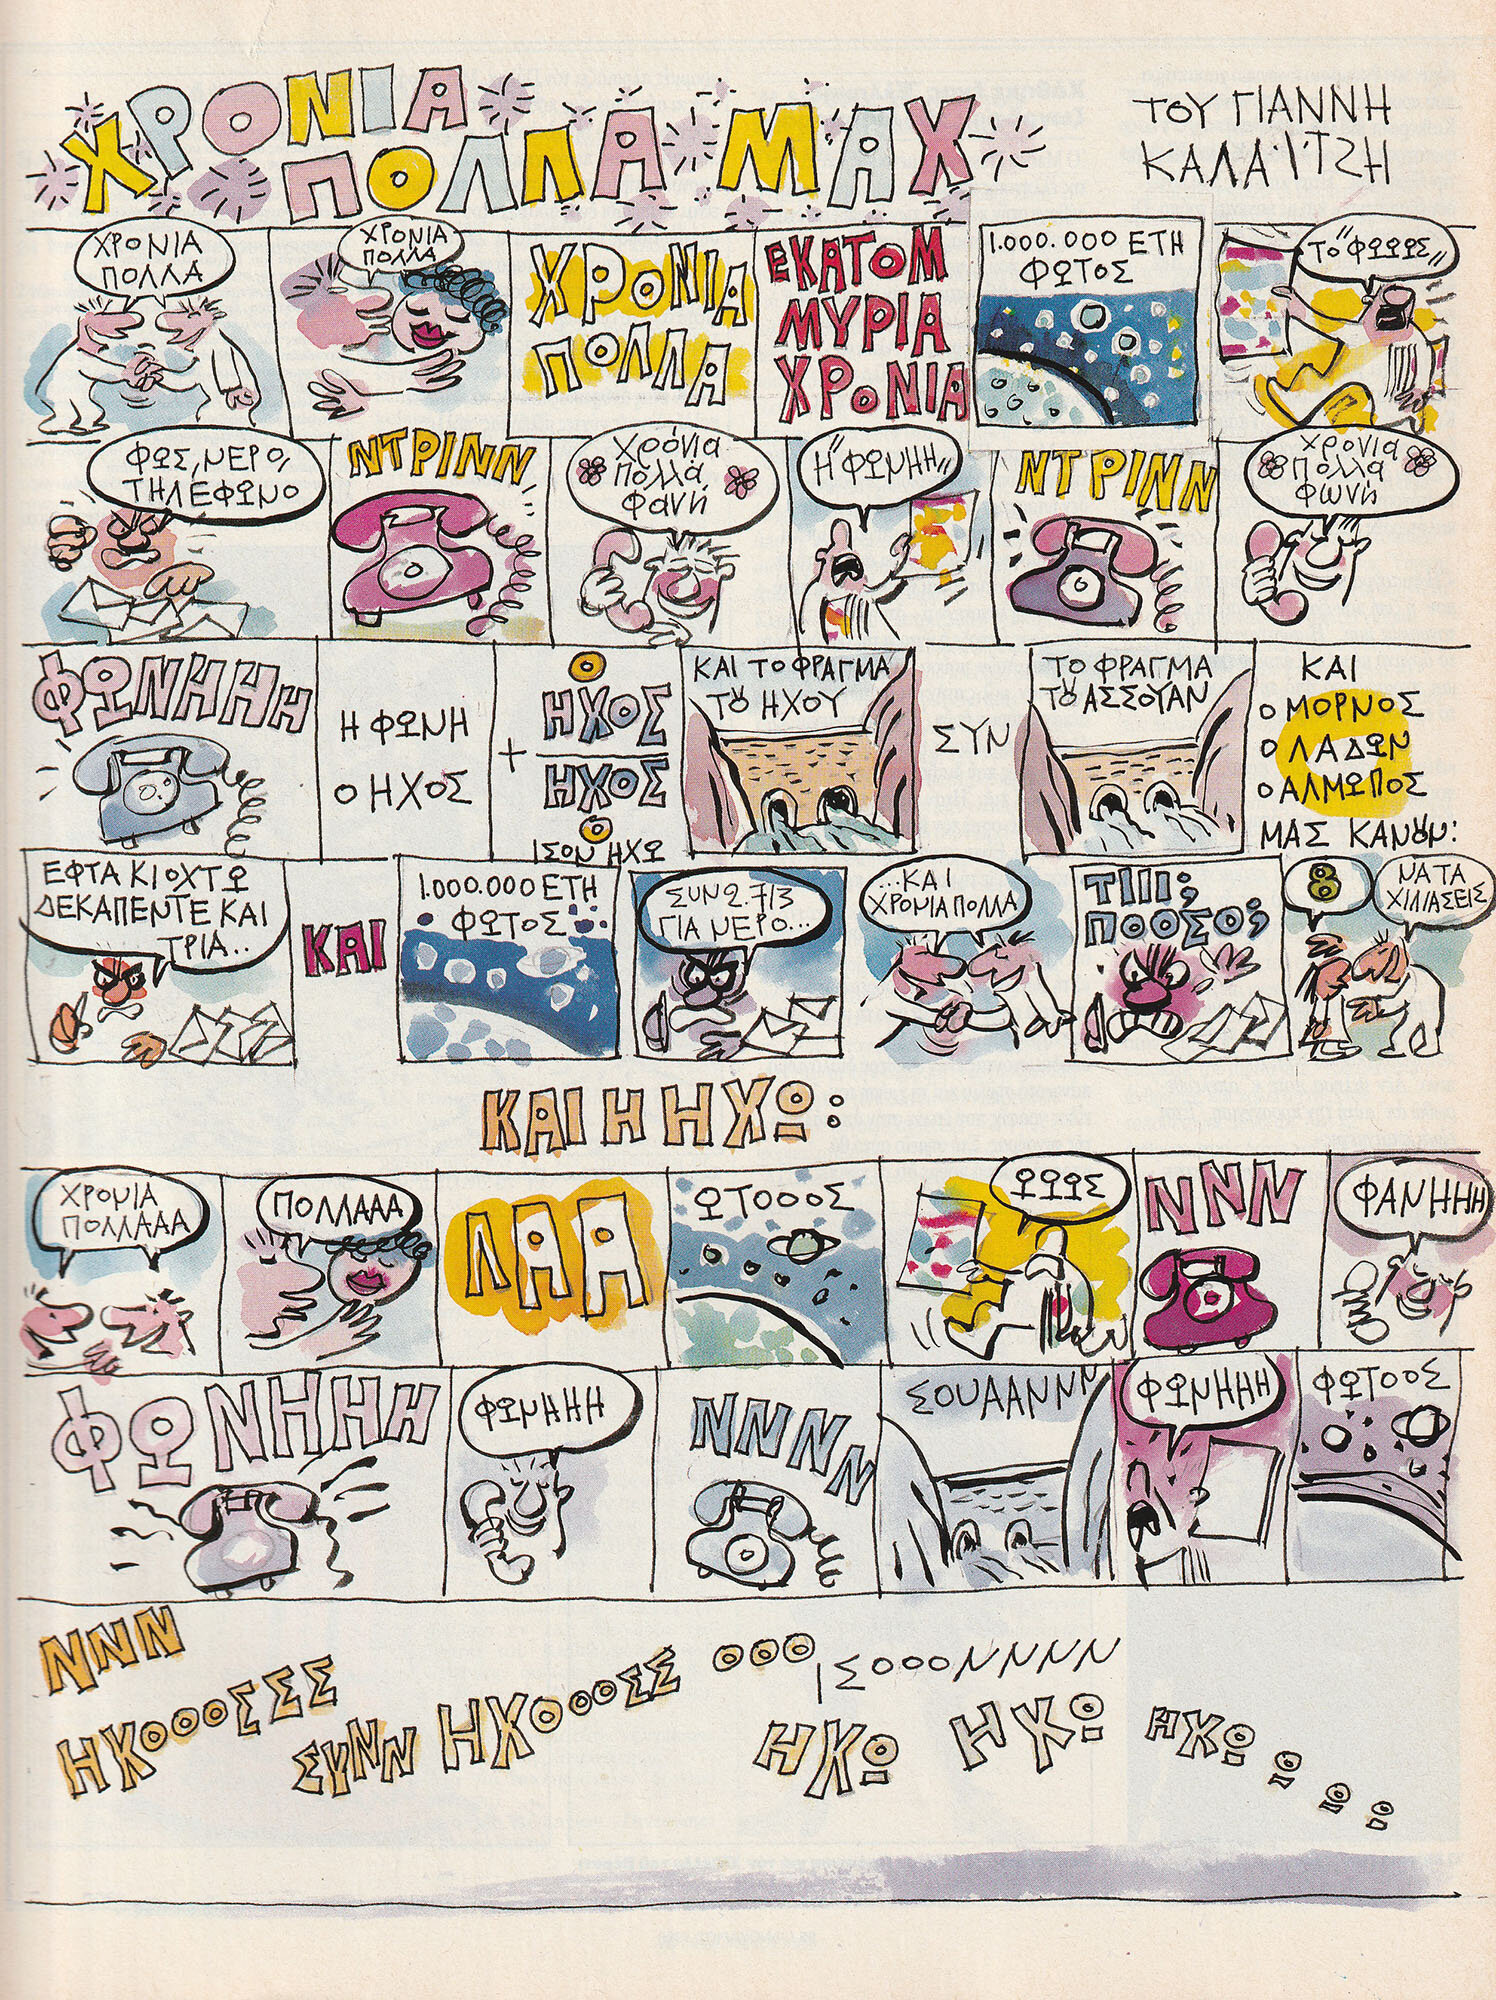 ΧΡΟΝΙΑ
ΠΟΛΛΑ ΜΑΧ
ΤΟΥ ΓΙΑΝΝΗ
ΚΑΛΑΪΤΖΗ
ΧΡΟΝΙΑ
ΠΟΛΛΑ
ΧΡΟΝΙΑ
ΠΟΛΛΑ
ΧΡΟΝΙΑ
ΠΟΛΛΑ
ΕΚΑΤΟΜ
ΜΥΡΙΑ
ΧΡΟΝΙΑ
1.000.000 ΕΤΗ
ΦΩΤΟΣ
ΤΟ "ΦΩΩΩΣ"
ΦΩΣ, ΝΕΡΟ,
ΤΗΛΕΦΩΝΟ
ΝΤΡΙΝΝ
Χρόνια
πολλά
Φανή
Η "ΦΩΝΗΗ"
ΝΤΡΙΝΝ
Χρονια
πολλα
φωνή
ΦΩΝΗΗΗ
Η ΦΩΝΗ
Ο ΗΧΟΣ
+
Ο
ΗΧΟΣ
ΗΧΟΣ
Ο
ΙΣΟΝ ΗΧΩ
ΚΑΙ ΤΟ ΦΡΑΓΜΑ
ΤΟΥ ΗΧΟΥ
ΣΥΝ
ΤΟ ΦΡΑΓΜΑ
ΤΟΥ ΑΣΣΟΥΑΝ
ΚΑΙ
Ο ΜΟΡΝΟΣ
Ο ΛΑΔΩΝ
Ο ΑΛΜΩΠΟΣ
ΜΑΣ ΚΑΝΟΥΝ:
ΕΦΤΑ ΚΙ ΟΧΤΩ
ΔΕΚΑΠΕΝΤΕ ΚΑΙ
ΤΡΙΑ..
ΚΑΙ
1.000.000 ΕΤΗ
ΦΩΤΟΣ
ΣΥΝ 2.713
ΓΙΑ ΝΕΡΟ...
...ΚΑΙ
ΧΡΟΝΙΑ ΠΟΛΛΑ
ΤΙΙΙ;
ΠΟΟΣΟ;
8
ΝΑ ΤΑ
ΧΙΛΙΑΣΕΙΣ
ΚΑΙ Η ΗΧΩ:
ΧΡΟΝΙΑ
ΠΟΛΛΑΑΑ
ΠΟΛΛΑΑΑ
ΛΑΑ
ΩΤΟΟΟΣ
ΩΩΩΣ
ΝΝΝ
ΦΑΝΗΗΗ
ΦΩΝΗΗΗ
ΦΩΝΗΗΗ
ΝΝΝΝ
ΣΟΥΑΑΝΝΝ
ΦΩΝΗΗΗ
ΦΩΤΟΟΣ
ΝΝΝ
ΗΧΟΟΟΣΣΣ
ΣΥΝΝ
ΗΧΟΟΟΣΣ
ΟΟΟ
ΙΣΟΟΟΝΝΝΝ
ΗΧΩ
ΗΧΩ
ΗΧΩ Ω Ω Ω